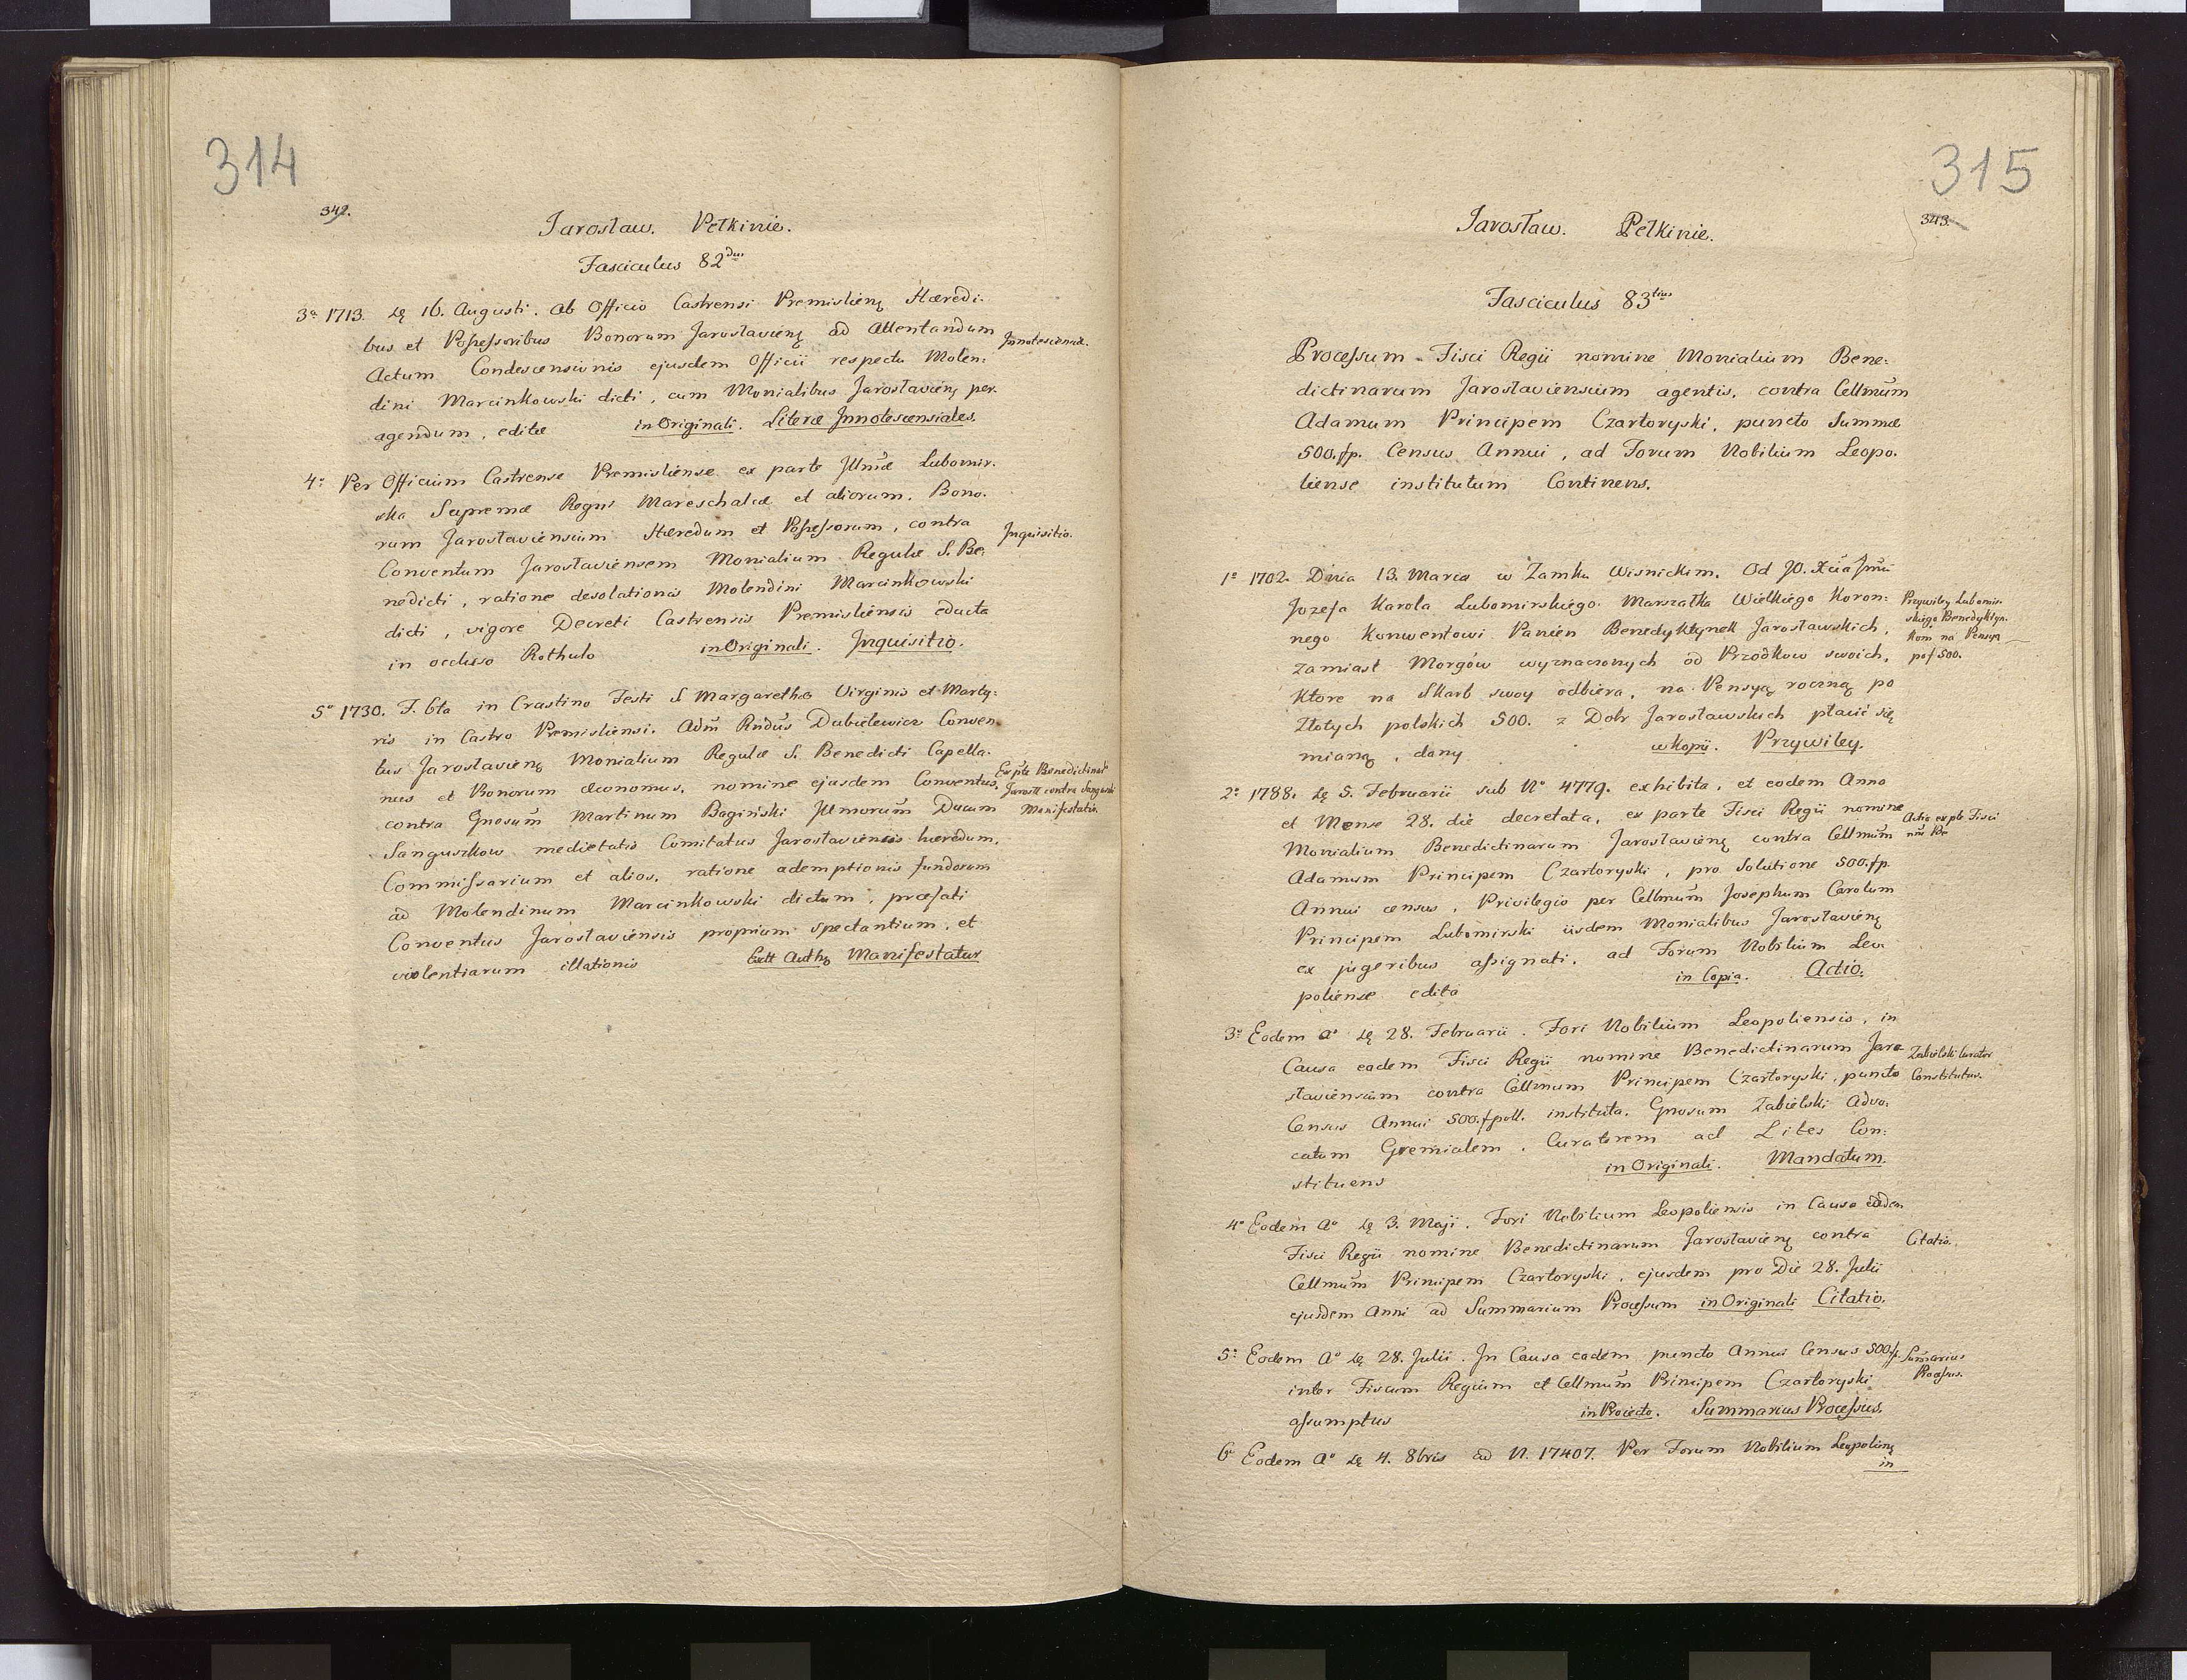 314
342.
Jarosław. Pełkinie.
Fasciculus 82dus
3a 1713. dę 16. Augusti. Ab Officio Castrensi Premislienę Hæredi-
bus et Poſseſsoribus Bonorum Jaroslavienę ad Attentandum
Actum Condescensionis ejusdem Officii respectu Molen:
dini Marcinkowski dicti, cum Monialibus Jaroslavienę per-
agendum, editæ in Originali. Literæ Innotescensiales.
4: Per Officium Castrense Premisliense ex parte Jllmæ Lubomir.
ska Supremæ Regni Mareschalcæ et aliorum. Bono.
rum Jaroslaviensium Hæredum et Poſseſsorum, contra
Inquisitio.
Conventum Jaroslaviensem Monialium Regulæ S. Be:
nedicti, ratione desolationis Molendini Marcinkowski
dicti, vigore Decreti Castrensis Premisliensis educta
in occluso Rothulo in Originali. Inquisitio.
5o 1730. F. 6ta in Crastino Festi S Margarethæ Virginis et Marty:
ris in Castro Premisliensi. Adm̄ Rndūs Dubielewicz Conven-
tus Jaroslavienę Monialium Regulæ S. Benedicti Capella-
nus et Bonorum Œconomus, nomine ejusdem Conventus,
contra Gnosūm Martinum Bagiński Jllmorūm Ducum
Manifestatio.
Sanguszkow medietatis Comitatus Jaroslaviensis hæredum,
Commiſsarium et alios, ratione ademptionis fundorum
ad Molendinum Marcinkowski dictum, præfati
Conventus Jaroslaviensis proprium spectantium, et
violentiarum illationis Extt Authę Manifestatur
315
343.
Jarosław. Pełkinie.
Fasciculus 83tius
Proceſsum Fisci Regii nomine Monialium Bene:
dictinarum Jaroslaviensium agentis, contra Cellmūm
Adamum Principem Czartoryski, puncto Summæ
500.fp. Census Annui, ad Forum Nobilium Leopo.
liense institutum Continens.
1o 1702. Dnia 13. Marca w Zamku Wisnickim. Od JO. Xcia Jmci
Jozefa Karola Lubomirskiego. Marszałka Wielkiego Koron:
nego Konwentowi Panien Benedyktynek Jarosławskich,
zamiast Morgów wyznaczonych od Przodkow swoich,
Ktore na Skarb swoy odbiera, na Pensyą roczną po
Złotych polskich 500. z Dobr Jarosławskich płacić się
mianą, dany w Kopii. Przywiley.
Przywiley Lubomir.
skiego Benedyktyn.
kom na Pensyą
pof 500.
2: 1788. dę 5. Februarii sub No 4779. exhibita, et eodem Anno
et Mense 28. die decretata, ex parte Fisci Regii nomine
Actio ex pte Fisci
Monialium Benedictinarum Jaroslavienę contra Cellmūm
Adamum Principem Czartoryski, pro Solutione 500.fp
Annui census, Privilegio per Cellmūm Josephum Carolum
Principem Lubomirski iisdem Monialibus Jaroslavienę
ex jugeribus aſsignati, ad Forum Nobilium Leo:
poliense edita in Copia. Actio.
3: Eodem Ao dę 28. Februarii. Fori Nobilium Leopoliensis, in
Causa eadem Fisci Regii nomine Benedictinarum Jaro-
slaviensium contra Cellmum Principem Czartoryski, puncto
Census Annui 500.fpoll. instituta, Gnosum Zabielski Advo:
catum Gremialem, Curatorem ad Lites Con:
stituens in Originali. Mandatum.
Zabielski Curator
Constitutus.
4o Eodem Ao dę 3. Maji. Fori Nobilium Leopoliensis in Causa eadem
Fisci Regii nomine Benedictinarum Jaroslavienę contra
Citatio.
Cellmūm Principem Czartoryski, ejusdem pro Die 28. Julii
ejusdem Anni ad Summarium Proceſsum in Originali Citatio.
5: Eodem Ao dę 28. Julii. In Causa eadem puncto Annui Census 500fp.
inter Fiscum Regium et Cellmūm Principem Czartoryski
aſsumptus in Proiecto. Summarius Proceſsus.
Sum̄arius
Proceſsus.
6o Eodem Ao dę 4. 8bris ad N. 17407. Per Forum Nobilium Leopolienę
in